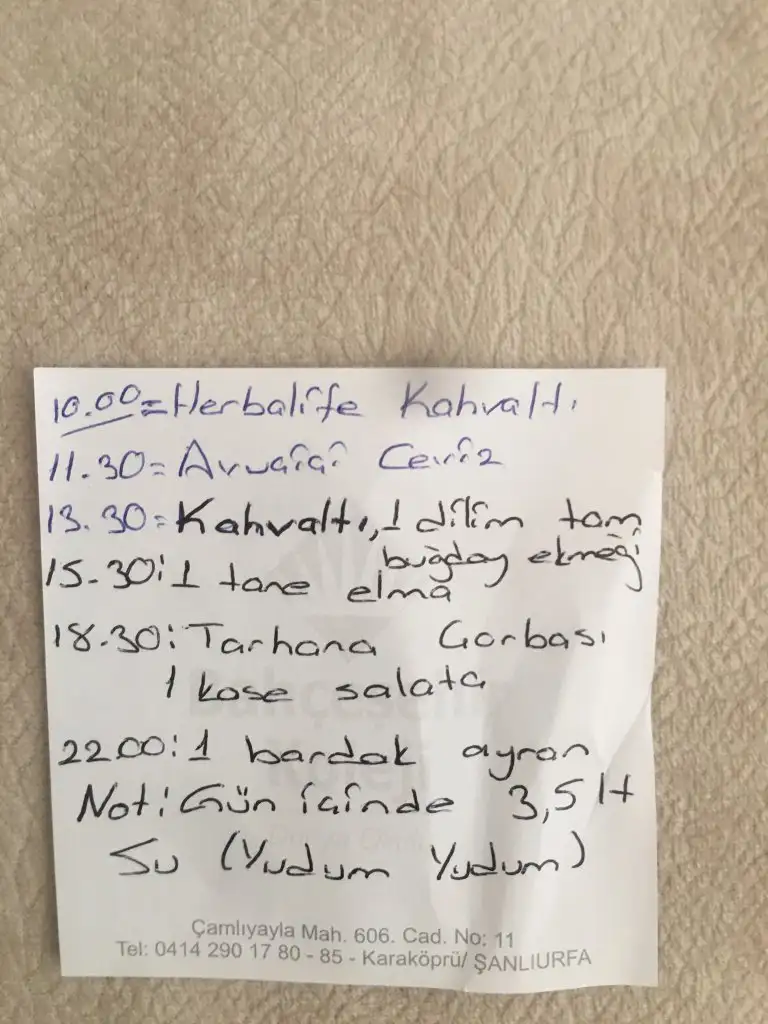 10.00=Herbalife Kahvaltı
11.30= Avuçiçi Ceviz
13.30= Kahvaltı, 1 dilim tam
buğday ekmeği
15.30: 1 tane elma
18.30: Tarhana Çorbası
1 kase salata
22.00: 1 bardak ayran
Not: Gün içinde 3,5 lt
Su (Yudum Yudum)
Bahçeşehir
Koleji
Çamlıyayla Mah. 606. Cad. No: 11
Tel: 0414 290 17 80 - 85 - Karaköprü/ ŞANLIURFA